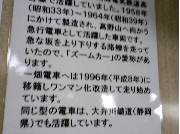 で活躍していました。1958年
(昭和33年)～1964年(昭和39年)
にかけて製造され、高野山へ向かう
急行電車として活躍した車両です。
急な坂を上り下りする路線を走って
いたので、「ズームカー」の愛称が
あります。
一畑電車へは1996年(平成8年)に
移籍しワンマン化改造して走り始め
ました。
同じ型の電車は、大井川鐵道(静岡
県)でも活躍しています。